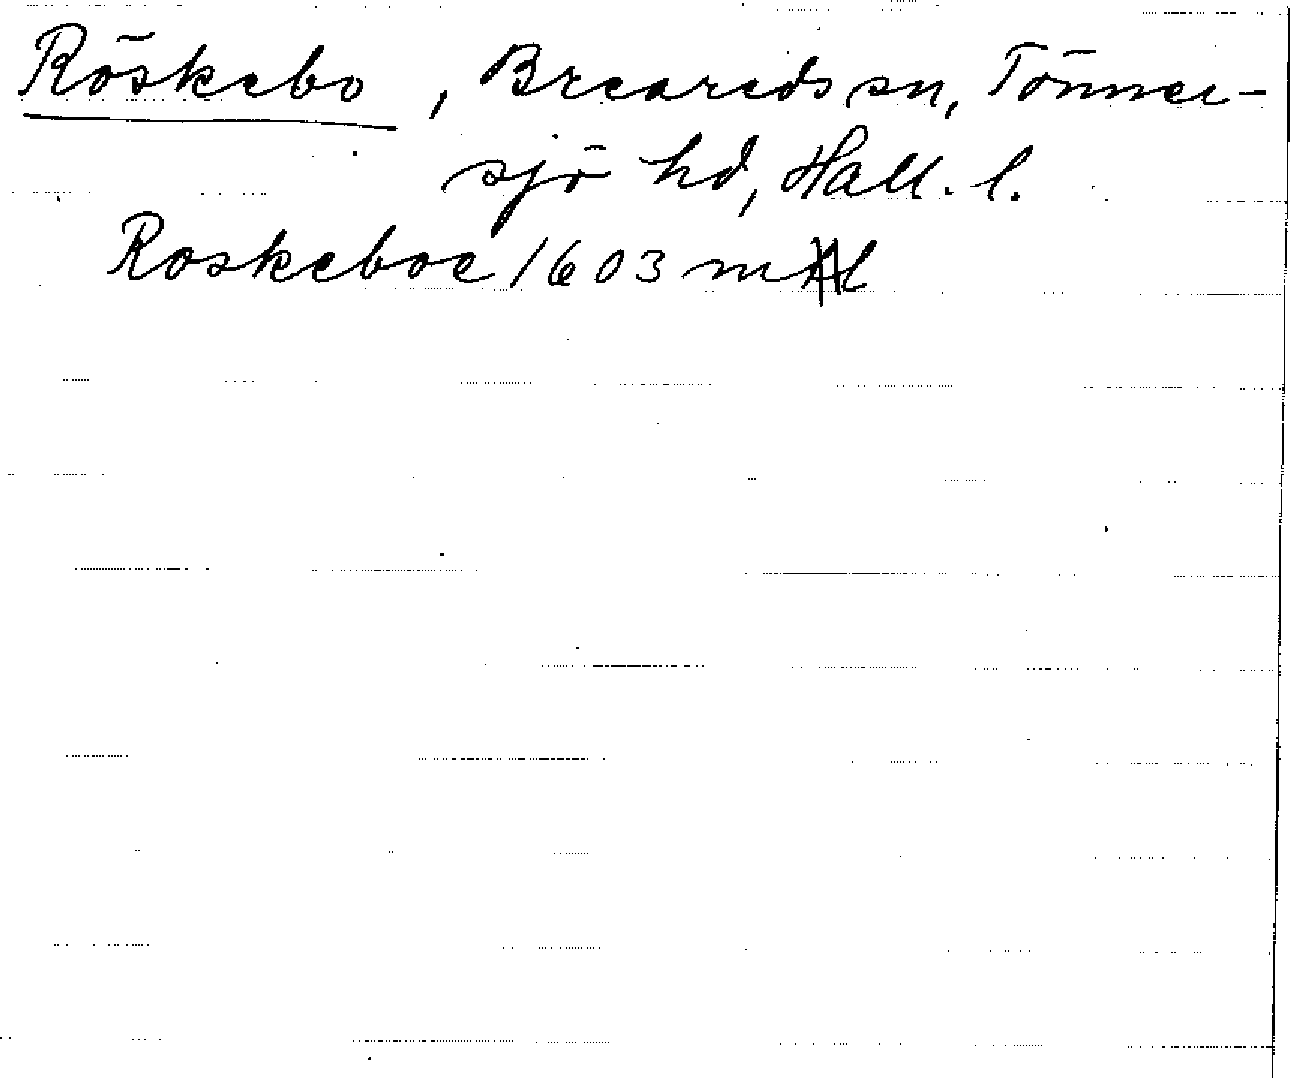 Röskebo, Breareds sn, Tönner-
sjö hd, Hall. l.
Roskeboe 1603